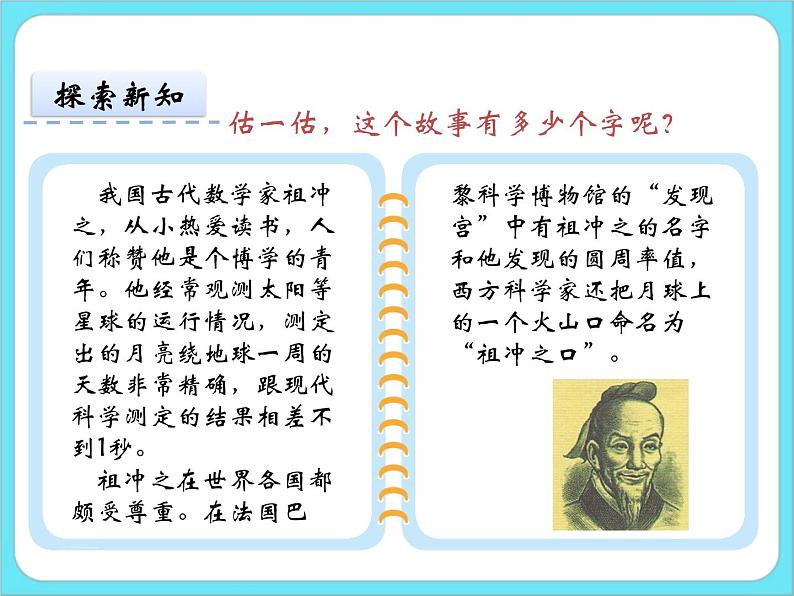 探索新知
估一估，这个故事有多少个字呢？
我国古代数学家祖冲
之，从小热爱读书，人
们称赞他是个博学的青
年。他经常观测太阳等
星球的运行情况，测定
出的月亮绕地球一周的
天数非常精确，跟现代
科学测定的结果相差不
到1秒。
祖冲之在世界各国都
颇受尊重。在法国巴
黎科学博物馆的“发现
宫”中有祖冲之的名字
和他发现的圆周率值，
西方科学家还把月球上
的一个火山口命名为
“祖冲之口”。